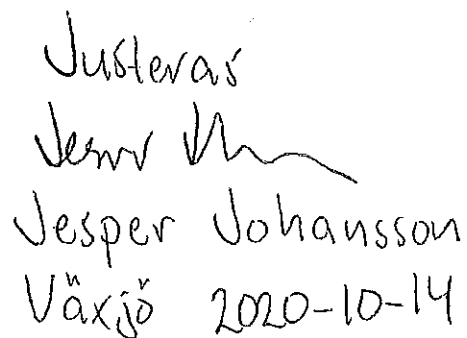 Justeras
Jesper Johansson
Växjö 2020-10-14